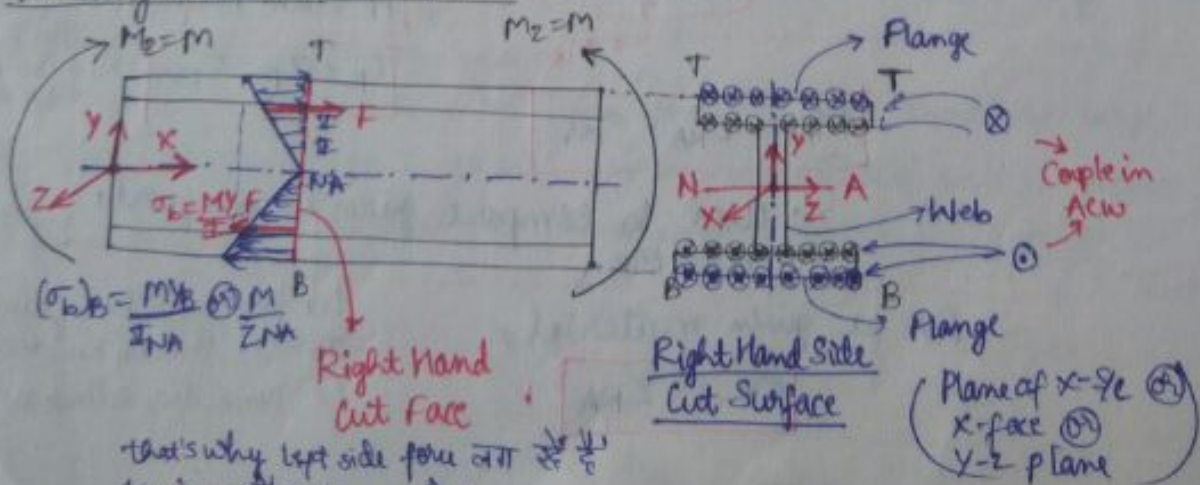 M_Z=M
M_Z=M
T
F
Y
X
Z
NA
σ_b=MY/I
F
B
(σ_b)_B = MY_B/I_NA (or) M/Z_NA
Right Hand
Cut Face
that's why left side force लग रहे हैं
Flange
T
T
Y
N
A
X
Z
Web
B
B
Flange
Right Hand Side
Cut Surface
Couple in
ACW
(Plane of X-S/C (or)
X-face (or)
Y-Z plane)